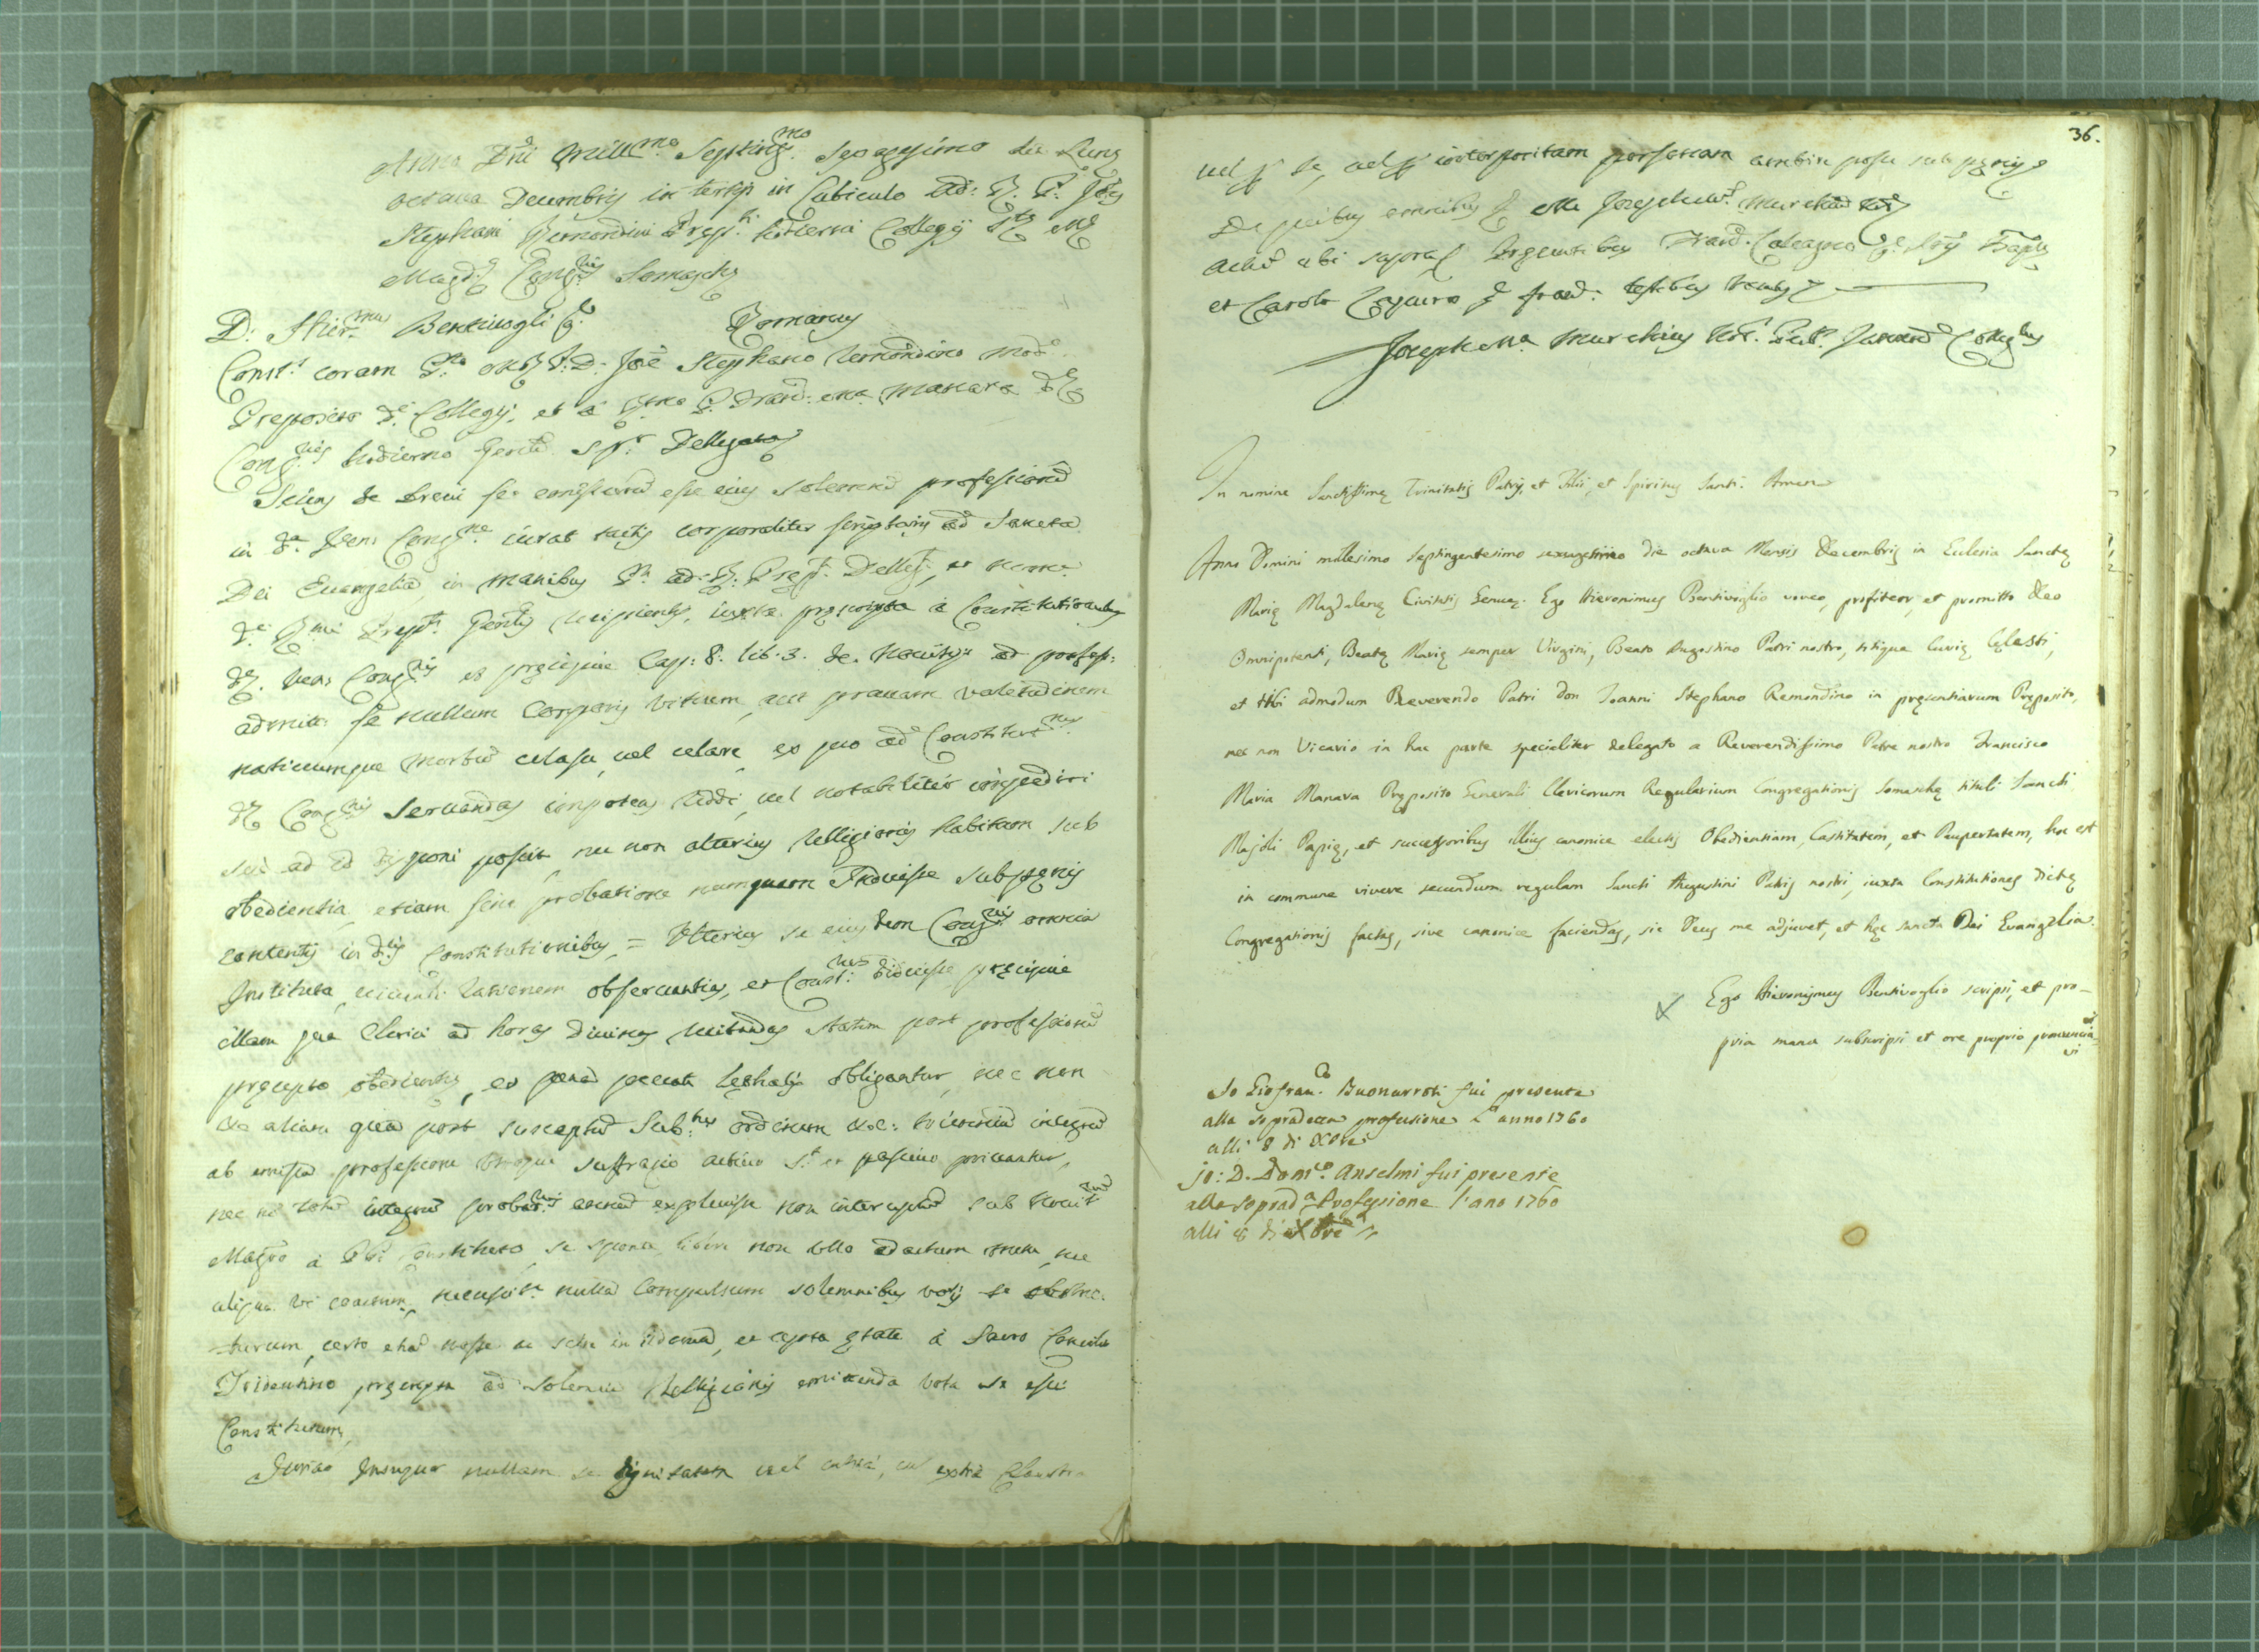 Anno Dni Mill.mo Septing.mo Sexagesimo die Lunę
octava Decembris in tertijs in Cubiculo Ad: R. P. Jois
Stephani Remondini Prep.ti hodierni Collegij Stę Mę
Magd.ę Cong.nis Somaschę
D. Hier.mus Bentivogli Romanus
Const.s coram P.to R. P. D. Joe Stephano Remondino mod.o
Preposito d.i Collegij, et a R.mo P. Franc. Ma. Manara dę
Cong.nis hodierno Gen.li sp.r Dellegato
Sciens se brevi fore emissurū esse eius solemnē professionē
in d.a Ven. Cong.ne iurat tactis corporaliter scripturis ad Sancta
Dei Evangelia in manibus P.ti ad. R. Prep.ti Delleg.ti, et nomine
d.i R.mi Prep.ti Gen.lis recipientis, iuxta pręscripta a Constitutionibus
dę Ven. Cong.nis et pręcipue Cap: 8. lib. 3. de Novitijs ad profess:
admitt. se nullum Corporis vitium, aut pravam valetudinem
naticumque morbū celasse, vel celare, ex quo ad Constitut.nes
dę Cong.nis servandas impotens reddi, vel notabiliter impediri
sive ad id disponi possit, nec non alterius Relligionis habitum sub
obedientia, etiam sine probatione numquam Induisse sub pęnis
contentis in d.is Constitutionibus = Ulterius se eiusdem Cong.nis omnia
Instituta, vivendi rationem observantias, et Const.nes didicisse pręcipue
illam qua Clerici ad horas Divinas recitandas statim post professionē
pręcepto obedientię, et pęna peccati lęthalis obligantur, nec non
et aliam qua post susceptū Sub.nus ordinem usq. trienniū integrū
ab emissa professione utroque suffragio activo s.t et passivo privantur,
nec nō totū integrū probat.nis annū explevisse non interruptū sub Novit.rum
Magro a PP. constituto, se sponte, libere non dolo adactum metu, nec
aliqua vi coactum, necessit.e nulla Compulsum solemnibus votis se obstric-
turum, certo etiā nosse ac scire in idonea, et apta ętate a Sacro Concilio
Tridentino pręscripta ad solemnia Relligionis emittenda vota se esse
Constitutum,
Iurao Insuper nullam se dignitatem vel intra, vel extra Claustra
36.
vel p. se, vel p. interpositam personam ambire posse sub pęnis
De quibus omnibus p. Me Josephum Ma. Murchiū Notę
Actū ubi supra Presentibus Franc.
et Carolo testibus vocatis
Joseph Ma. Murchius Not.s
In nomine Sanctissimę Trinitatis Patris, et Filii, et Spiritus Santi. Amen
Anno Domini millesimo septingentesimo sexagesimo die octava Mensis Decembris in Eclesia Sanctę
Marię Magdalenę Civitatis Genuę. Ego Hieronimus Bentivoglio voveo, profiteor, et promitto Deo
Omnipotenti, Beatę Marię semper Virgini, Beato Augustino Patri nostro, totique Curię Cęlesti,
et tibi admodum Reverendo Patri Don Ioanni Stephano Remondino in pręsentiarum Pręposito,
nec non Vicario in hac parte specialiter delegato a Reverendissimo Patre nostro Francisco
Maria Manara Pręposito Generali Clericorum Regularium Congregationis Somaschę tituli Sancti
Majoli Papię, et successoribus illius canonice electis Obedientiam, Castitatem, et Paupertatem, hoc est
in commune vivere secundum regulam Sancti Augustini Patris nostri, iuxta Constitutiones dictę
Congregationis factas, sive canonice faciendas, sic Deus me adjuvet, et hęc sancta Dei Evangelia.
Ego Hieronymus Bentivoglio scripsi, et pro-
pria manu subscripsi et ore proprio pronuncia
vi
Io Giofran.co Buonarroti fui presente
alla sopradetta professione L'anno 1760
alli 8 di Xbre
jo: D. Dom.co Anselmi fui presente
alla soprad.a Professione l'ano 1760
alli 8 di Xbre